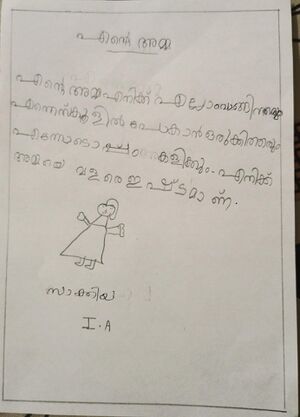 എന്റെ അമ്മ
എന്റെ അമ്മ എനിക്ക് എല്ലാം വാങ്ങിത്തരും
എന്നെ സ്കൂളിൽ പോകാൻ ഒരുക്കിത്തരും
എന്നോടൊപ്പം കളിക്കും. എനിക്ക്
അമ്മയെ വളരെ ഇഷ്ടമാണ്.
I.A